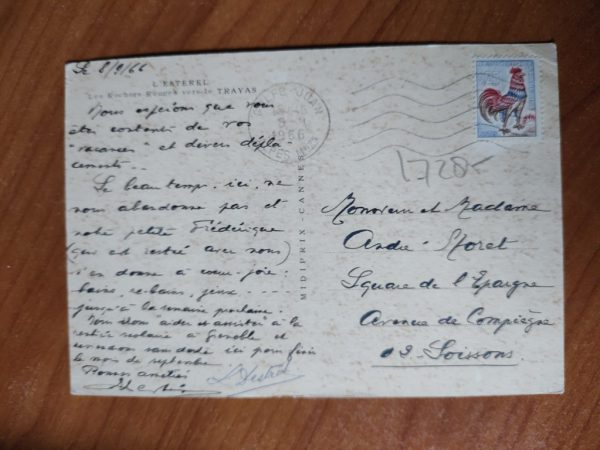 Le 8/9/66
L'ESTEREL
Les Rochers Rouges vers le TRAYAS
Nous espérons que vous
êtes contents de vos
"vacances" et divers dépla-
cements.
Le beau temps, ici, ne
nous abandonne pas et
notre petite Frédérique
(qui est restée avec nous)
s'en donne à cœur-joie:
bains, re-bains, jeux
jusqu'à la semaine prochaine.
à la
rentrée scolaire à Grenoble et
sans doute ici pour finir
le mois de septembre
Bonnes amitiés
MIDIPRIX - CANNES
JUAN
1966
1728-
Monsieur et Madame
André
Square de l'Epargne
Avenue de Compiègne
02. Soissons